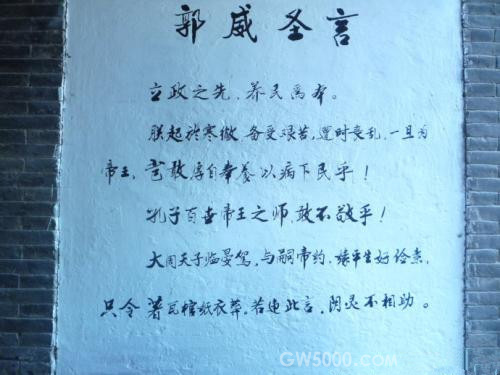 郭威圣言
立政之先，养民為本。
朕起於寒微，备受艰苦，遭时丧乱，一旦为
帝王，岂敢厚自奉养以病下民乎！
孔子百世帝王之师，敢不敬乎！
大周天子临晏驾，与嗣帝约，缘平生好俭素，
只令著瓦棺纸衣葬，若违此言，阴灵不相助。
GW5000.COM